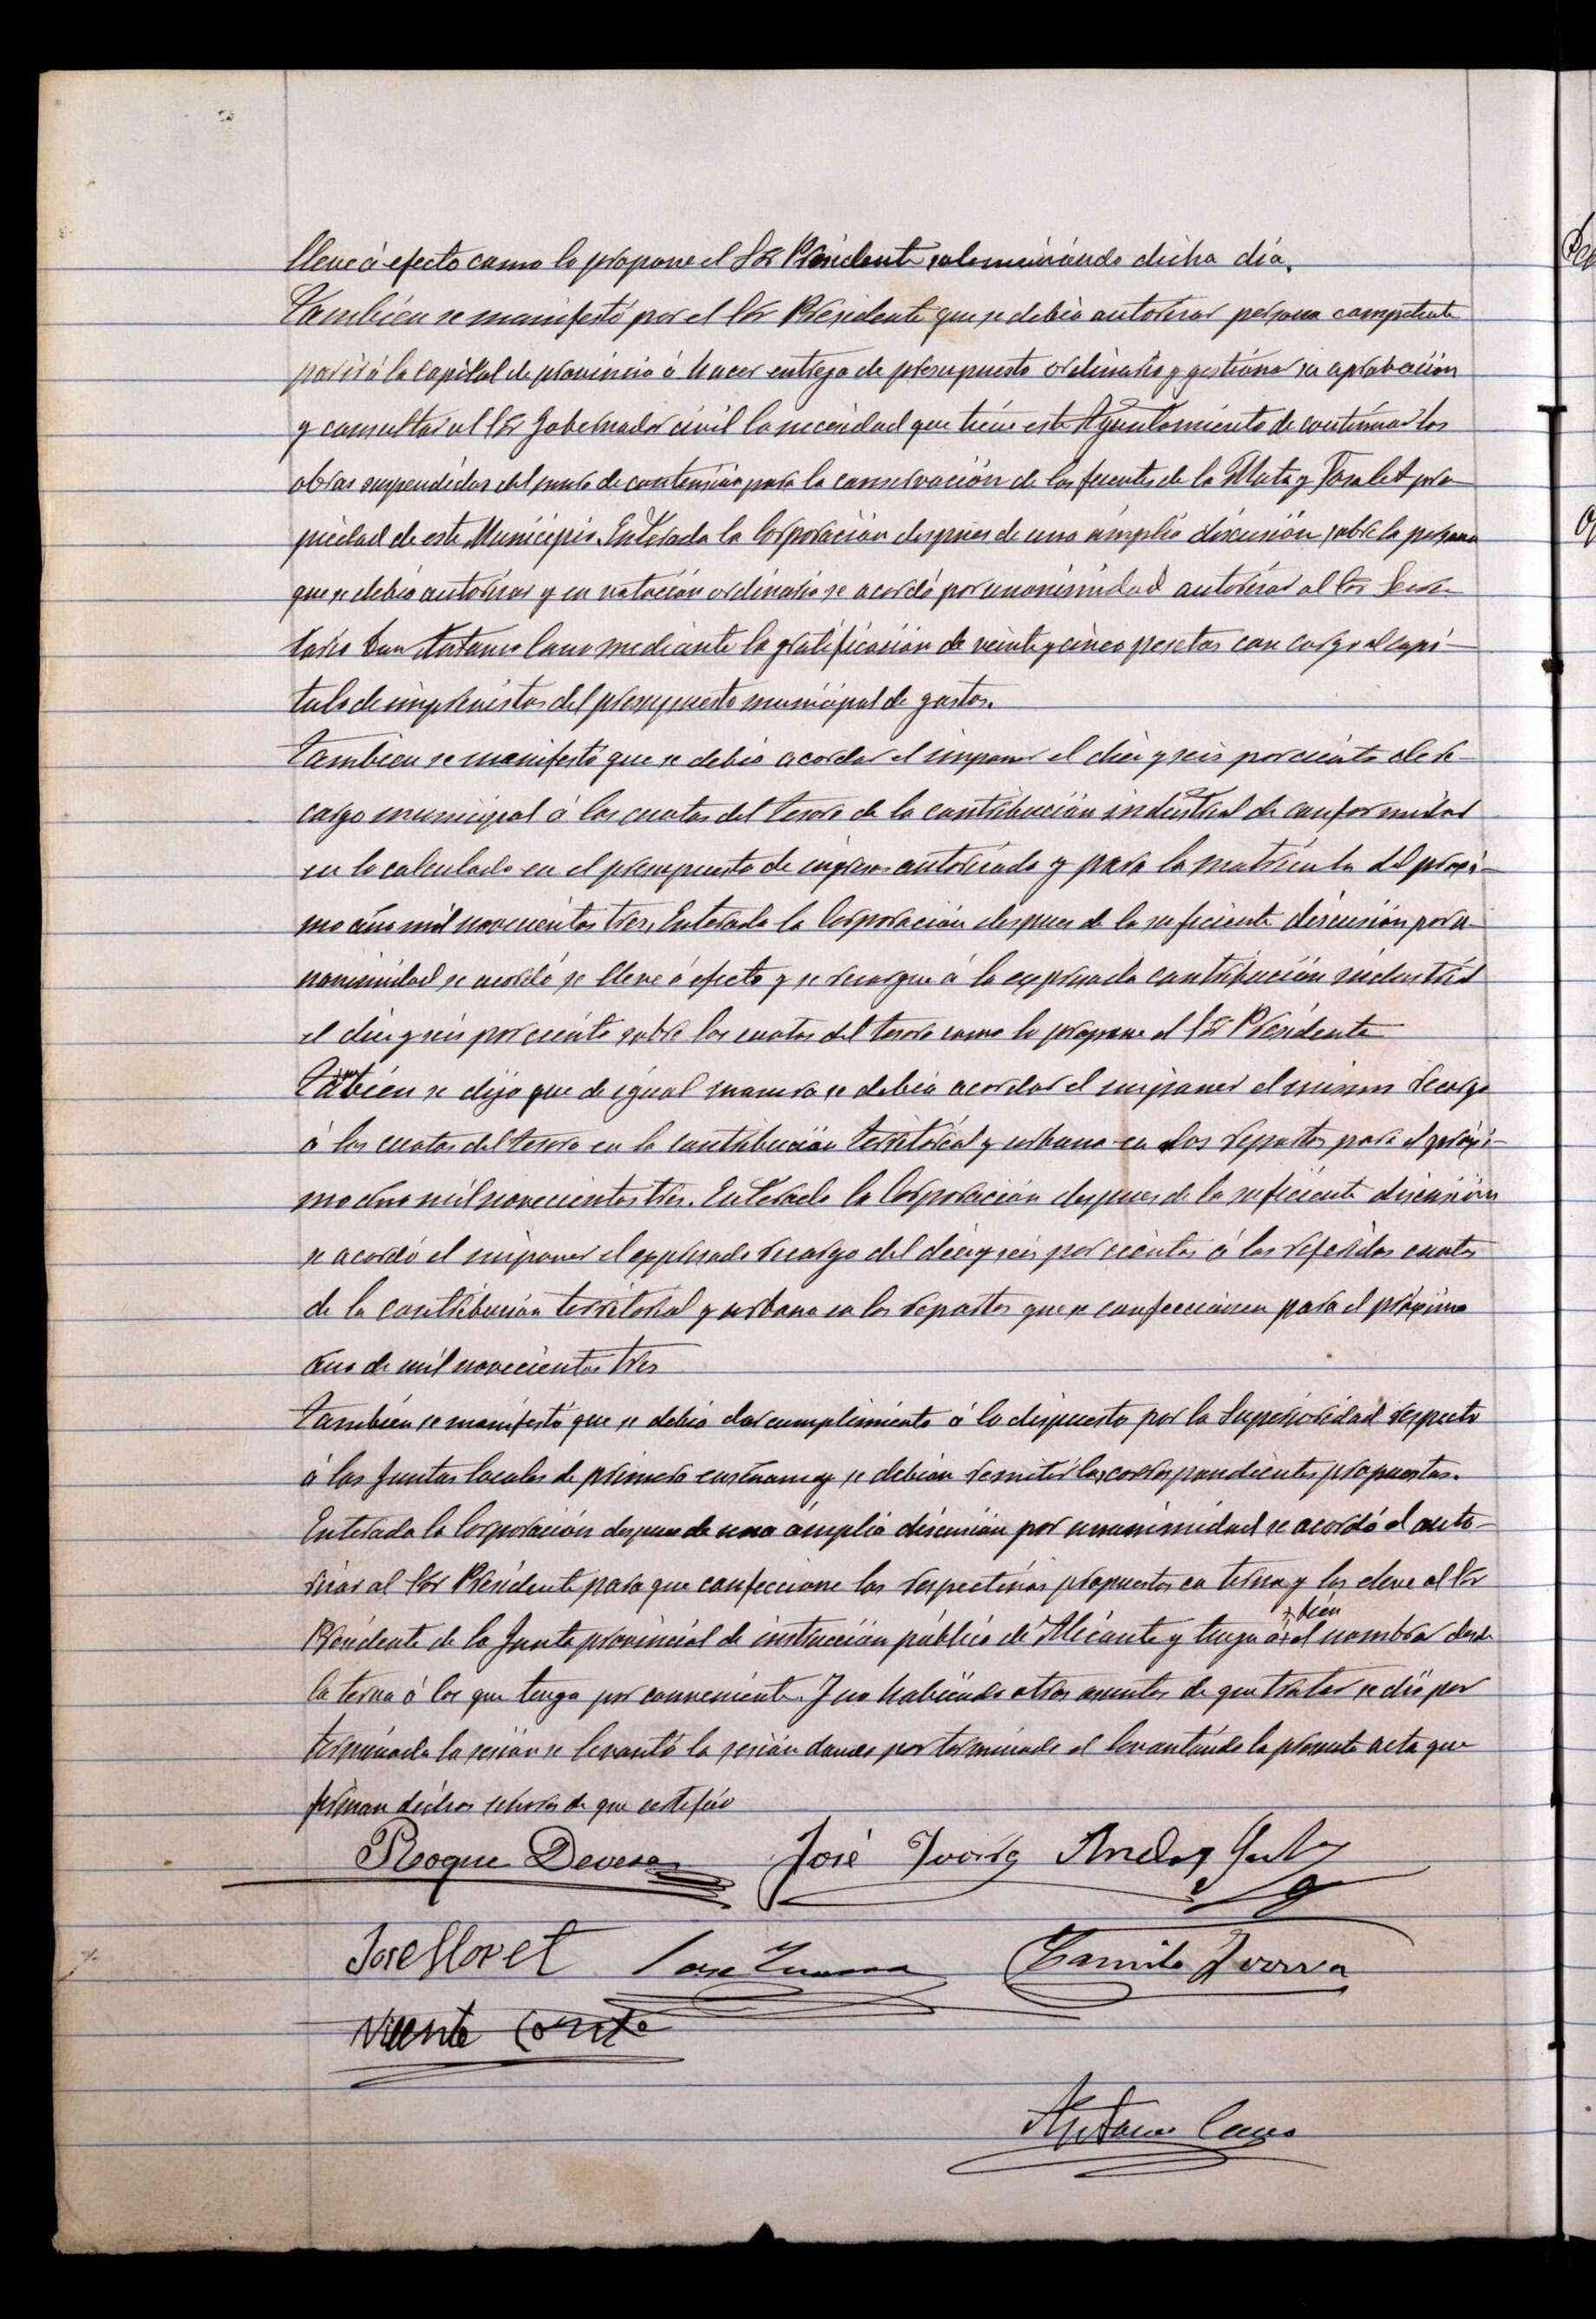 lleve á efecto como lo propone el Sr Presidente solemnizándo dicho dia.
También se manifestó por el Sor Presidente que se debia autorizar persona competente
par ir á la capital de provincia á hacer entrega de presupuesto ordinario y gestionar su aprobación
y consultar al Sor Gobernador civil la necesidad que tiene este Ayuntamiento de continuar las
obras suspendidas del muro de contension para la conservación de las fuentes de la Mata y Tosalet pro-
piedad de este Municipio. Enterada la Corporación despues de una ámplia discusión sobre la persona
que se debia autorizar y en votación ordinaria se acordó por unanimidad autorizar al Sor Secre-
tario Don Antonio Cano mediante la gratificación de veinte y cinco pesetas con cargo al capi-
tulo de imprevistos del presupuesto municipal de gastos.
Tambien se manifestó que se debia acordar el imponer el diez y seis por ciento de re-
cargo municipal á las cuotas del tesoro de la contribución industrial de conformidad
en lo calculado en el presupuesto de ingresos autorizado y para la matricula del proxi-
mo año mil novecientos tres. Enterada la Corporación despues de la suficiente discusión por u-
nanimidad se acordó se lleve á efecto y se recargue á la expresada contribución industrial
el diez y seis por ciento sobre las cuotas del tesoro como lo propone el Sr Presidente
Tambien se dijo que de igual manera se debia acordar el imponer el mismo recargo
á las cuotas del tesoro en la contribución territorial y urbana en los repartos para el proxi-
mo año mil novecientos tres. Enterada la Corporación despues de la suficiente discusión
se acordó el imponer el expresado recargo del diez y seis por cientos á las referidas cuotas
de la contribución territorial y urbana en los repartos que se confeccionen para el próximo
año de mil novecientos tres
También se manifestó que se debia dar cumplimiento á lo dispuesto por la Superioridad respecto
á las Juntas locales de primera enseñanza y se debian remitir las correspondientes propuestas.
Enterada la Corporación despues de una ámplia discusión por unanimidad se acordó el auto-
rizar al Sor Presidente para que confeccione las respectivas propuestas en terna y las eleve al Sor
bien
Presidente de la Junta provincial de instrucción pública de Alicante y tenga á el nombrar desde
la terna á los que tenga por conveniente. Y no habiéndo otros asuntos de que tratar se dió por
terminada la sesión se levantó la sesión dando por terminado el levantándo la presente acta que
firman dichos señores de que certifico
Roque Devesa José Ivorra Andrés
José Lloret José Camilo Ivorra
Vicente
Antonio Cano